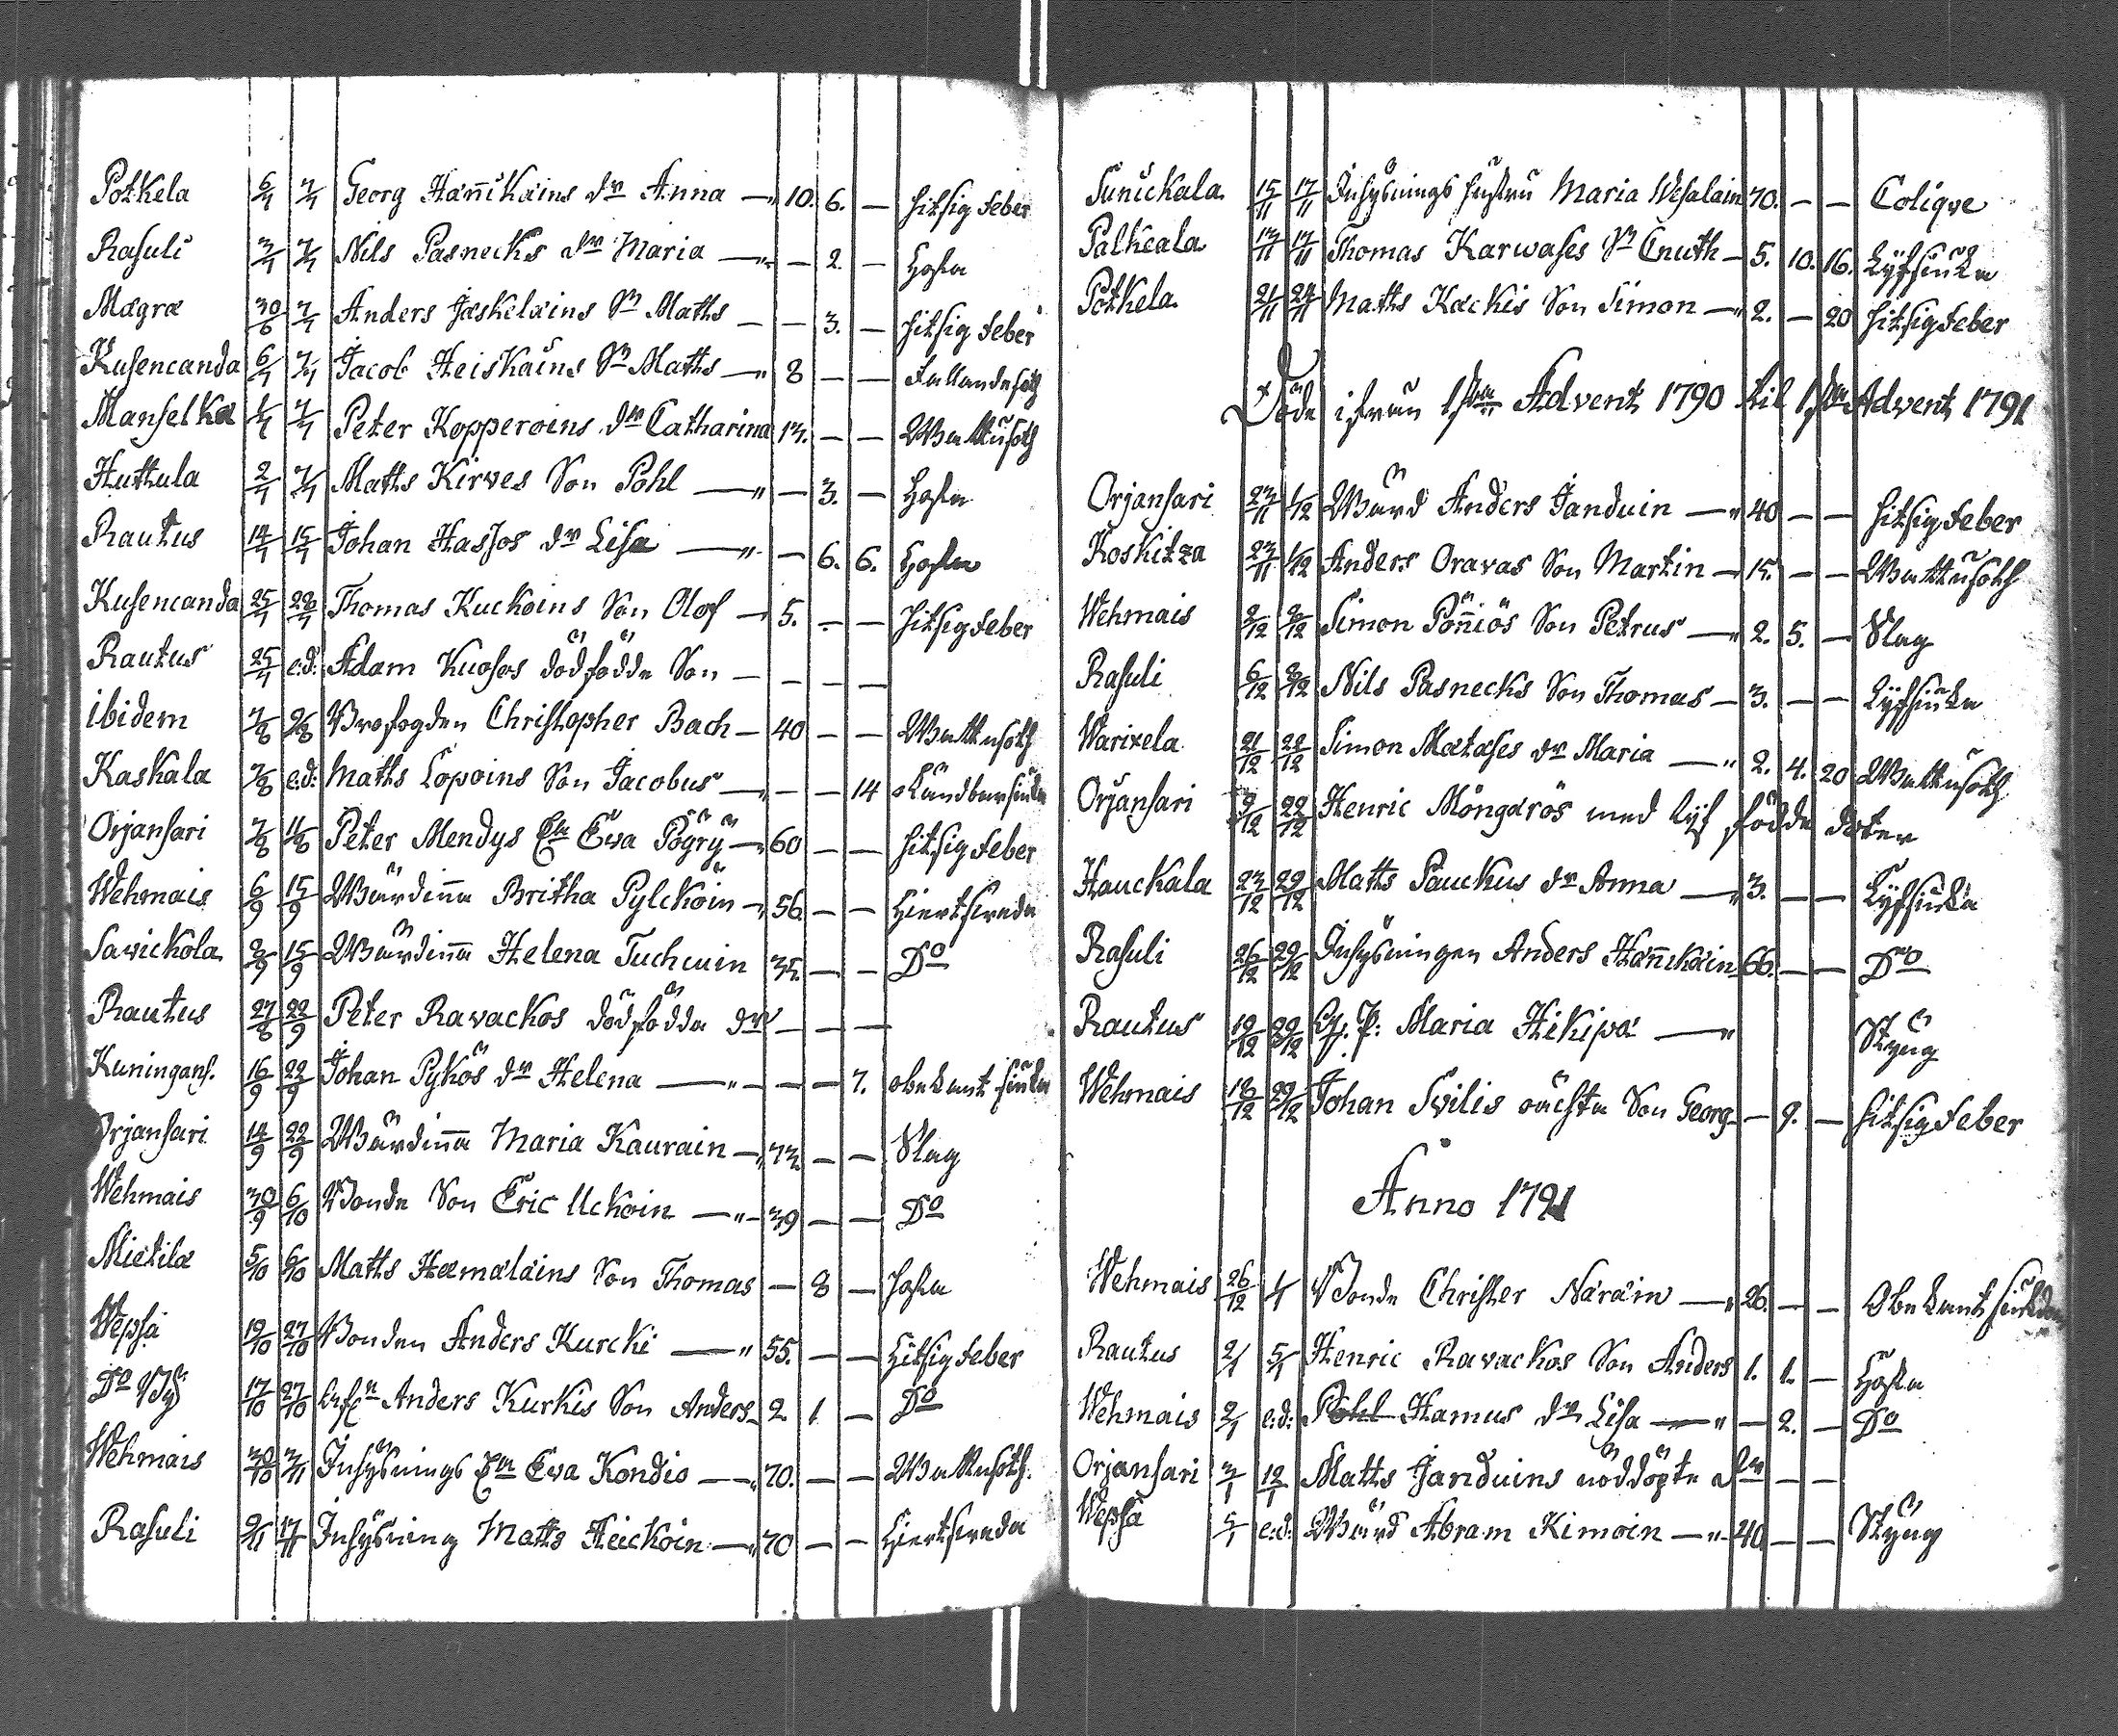 Potkela 6/7 7/7 Georg Hañikains dr Anna — 10. 6. — hitsig feber
Rasuli 3/7 7/7 Nils Pasnecks dr Maria — — 2. — Hosta
Mägrä 30/6 7/7 Anders Jäskeläins Sn Maths — — 3. — hitsig feber
Kusencanda 6/7 7/7 Jacob Heiskains Sn Maths — 8 — — Fallandesot
Manselkä 1/7 7/7 Peter Kopperoins dr Catharina 13. — — Wattusoth
Huttula 2/7 7/7 Maths Kirves Son Pohl — — 3. — Hosta
Rautus 14/7 15/7 Johan Hassos dr Lisa — — 6. 6. Hosta
Kusencanda 25/7 28/7 Thomas Kuckoins Son Olof — 5. — — Hitsig feber
Rautus 25/7 e.d: Adam Kuosos dödfödde Son — — — —
ibidem 7/8 9/8 Brofogden Christopher Bach — 40 — — Wattusoth
Kaskala 7/8 e.d: Maths Lopoins Son Jacobus — — — 14
Orjansari 7/8 11/8 Peter Mendys Eva Pögry — 60 — — hitsig feber
Wehmais 6/9 15/9 Wärdiña Britha Pylcköin — 56. — — Hiertsreda
Savickola 8/9 15/9 Wärdiña Helena Tuchuin 35. — — Do
Rautus 27/8 22/9 Peter Ravackos dödfödda dr — — —
Kuningans. 16/9 22/9 Johan Pykös dr Helena — — — 7. obekant siuka
Orjansari 14/9 22/9 Wärdiña Maria Kaurain — 73. — — Slag
Wehmais 30/9 6/10 Bonde Son Eric Uckoin — 39 — — Do
Mietilä 5/10 6/10 Maths Hämäläins Son Thomas — 8 — hosta
Wepsä 19/10 27/10 Bonden Anders Kurcki — 55. — — Hitsig feber
Do By 17/10 27/10 Anders Kurkis Son Anders — 2. 1 — Do
Wehmais 30/10 3/11 Inhysnings Eva Kondio — 70. — — Wattusoth.
Rasuli 9/11 17/11 Inhysning Matts Heickoin — 70 — — Hiertsreda
Sunickala 15/11 17/11 Inhysnings hustru Maria Wesalain 70. — — Colique
Palkeala 13/11 17/11 Thomas Karwases Sn Cnuth — 5. 10. 16. Lyfsiuka
Potkela 21/11 24/11 Maths Kackis Son Simon — 2. — 20 hitsig feber
Döde ifrån 1sta Advent 1790 til 1sta Advent 1791
Orjansari 23/11 1/12 Wärd Anders Janduin — 40 — — hitsig feber
Koskitza 23/11 1/12 Anders Oravas Son Martin — 15. — — Wattusoth
Wehmais 2/12 8/12 Simon Pöñiös Son Petrus — 2. 5. — Slag
Rasuli 6/12 8/12 Nils Pasnecks Son Thomas — 3. — — Lyfsiuka
Warixela 21/12 22/12 Simon Mätäses dr Maria — 2. 4. 20 Wattusoth
Orjansari 9/12 22/12 Henric Möngärös med lyf födde doter
Hauckala 23/12 29/12 Matts Pauckus dr Anna — 3. — — Lyfsiuka
Rasuli 26/12 29/12 Inhysningen Anders Hañickäin 66. — — Do
Rautus 19/12 29/12 Maria Hikipä — Styng
Wehmais 18/12 29/12 Johan Svilis oächta Son Georg — 9. — hitsig feber
Anno 1791
Wehmais 26/12 1/1 Bonde Christer Näräin — 26. — — Obekant siukdom
Rautus 2/1 5/1 Henric Ravackos Son Anders 1. 1. — Hosta
Wehmais 2/1 e.d: Pohl Hamus dr Lisa — — 2. — Do
Orjansari 3/1 12/1 Matts Janduins nöddöpte dr — —
Wepsä 5/1 e.d: Wärd Abram Kimoin — 40. — — Styng